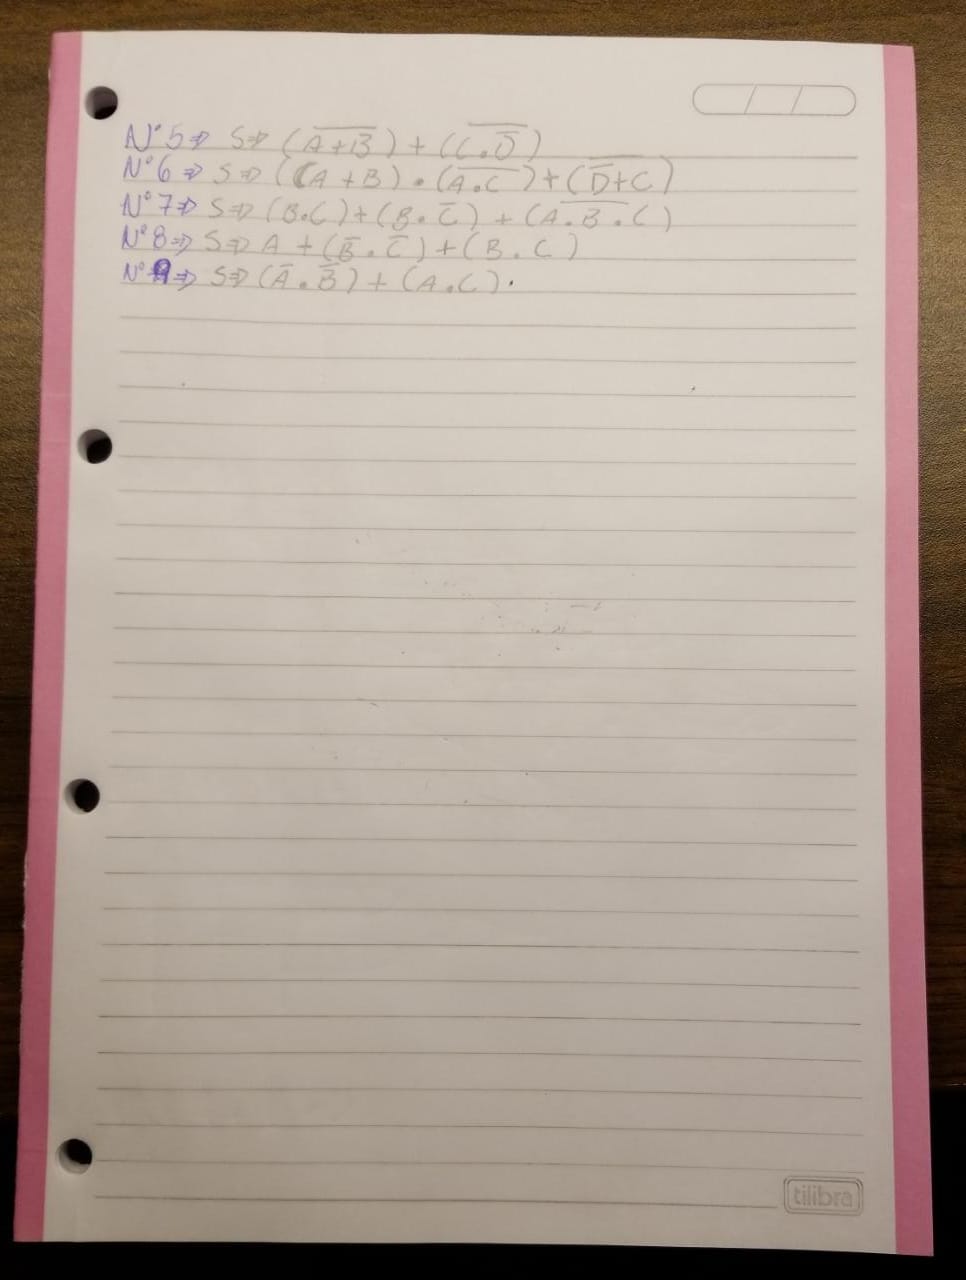 N°5⇒ S⇒ (A̅ ̅+̅ ̅B̅) + (C̅ ̅.̅ ̅D̅)
N°6⇒ S⇒ ((A + B) . (A̅ ̅.̅ ̅C̅) + (D̅ ̅+̅ ̅C̅)
N°7⇒ S⇒ (B.C) + (B. C̅) + (A. B̅ . C)
N°8⇒ S⇒ A + (B̅ . C̅) + (B . C)
N°9⇒ S⇒ (A̅ . B̅) + (A.C).
tilibra